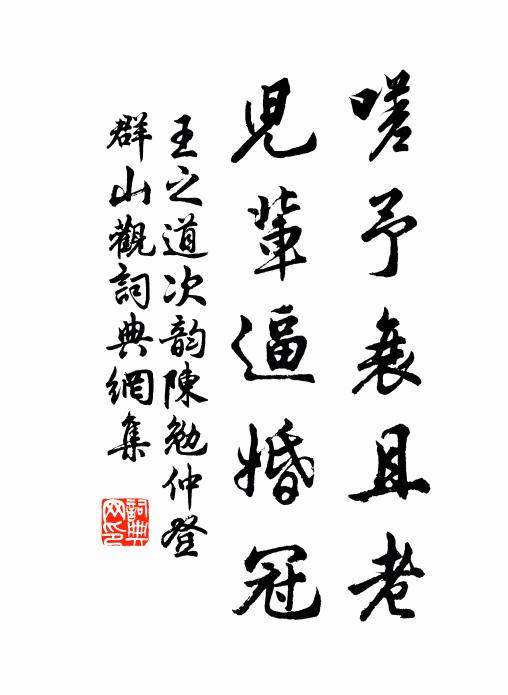 嗟予衰且老
兒輩逼婚冠
王之道次韵陳勉仲登
群山觀詞典網集
詞典
网印